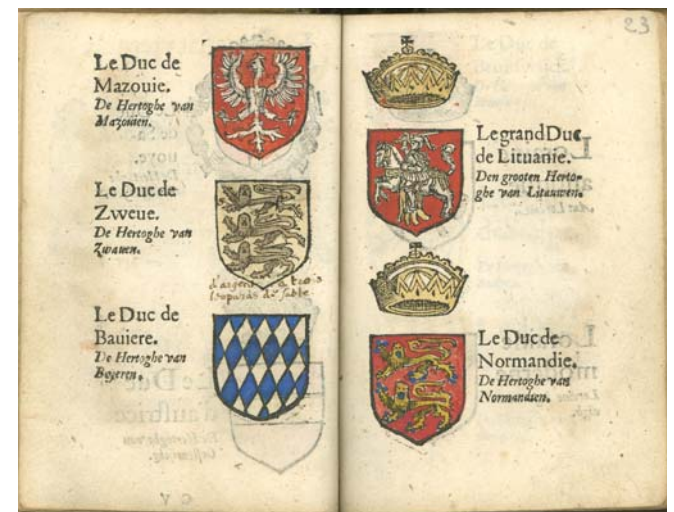 Le Duc de
Mazouie.
De Hertoghe van
Mazouien.
Le Duc de
Zweue.
De Hertoghe van
Zwauen.
d'argent à trois
leopards de sable
Le Duc de
Bauiere.
De Hertoghe van
Beyeren.
C V
23
Le grand Duc
de Lituanie.
Den grooten Herto-
ghe van Litauwen.
Le Duc de
Normandie.
De Hertoghe van
Normandien.